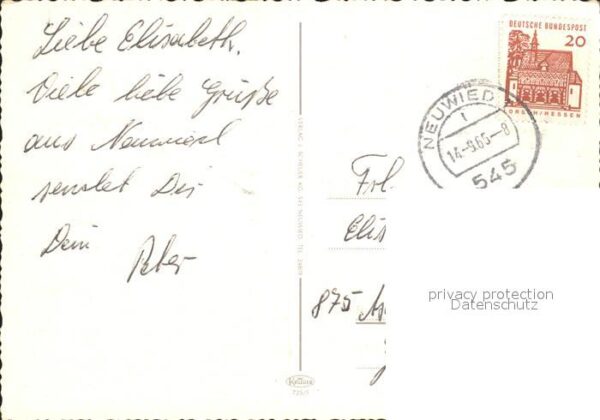 Liebe Elisabeth,
Viele liebe Grüße
aus Neuwied
sendet Dir
Dein Peter
DEUTSCHE BUNDESPOST
20
LORSCH/HESSEN
NEUWIED
1
14.-9.65-8
545
Frl.
Elis
875 As
privacy protection
Datenschutz